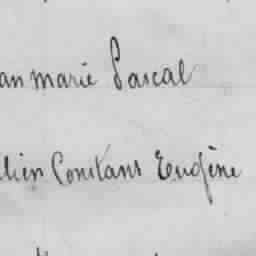 an marie Pascal
lien Constans Eugène